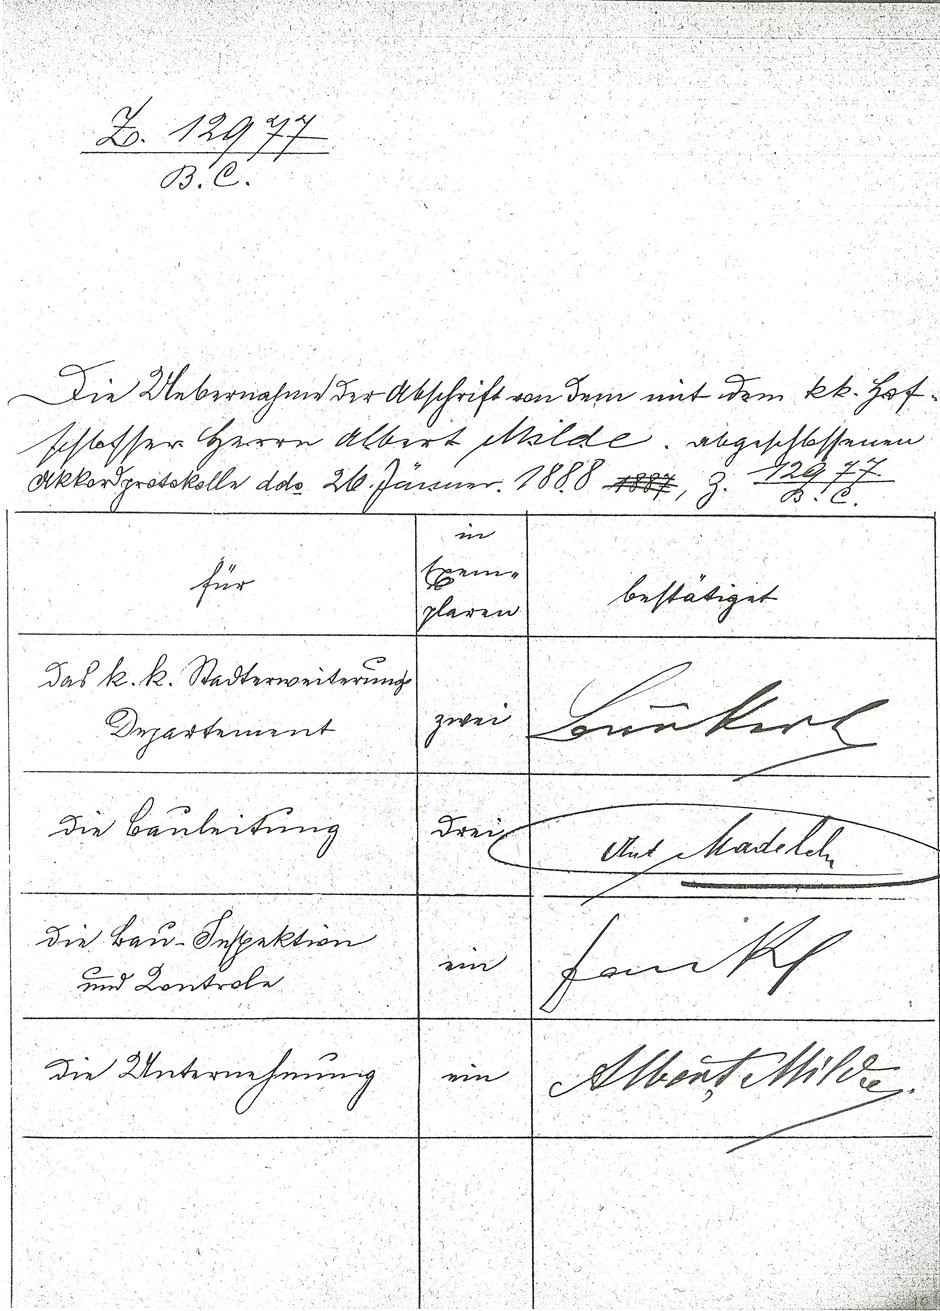 Z. 12977
B. C.
Die Uebernahme der Abschrift von dem mit dem kk. Hof-
schlosser Herrn Albert Milde. abgeschlossenen
Akkordprotokolle ddo 26. Jänner. 1888 1887, Z. 12977
B. C.
für
in
Exem-
plaren
bestätiget
das k. k. Stadterweiterungs
Departement
zwei
die Bauleitung
drei
die Bau-Inspektion
und Kontrole
ein
die Unternehmung
ein
Albert Milde.